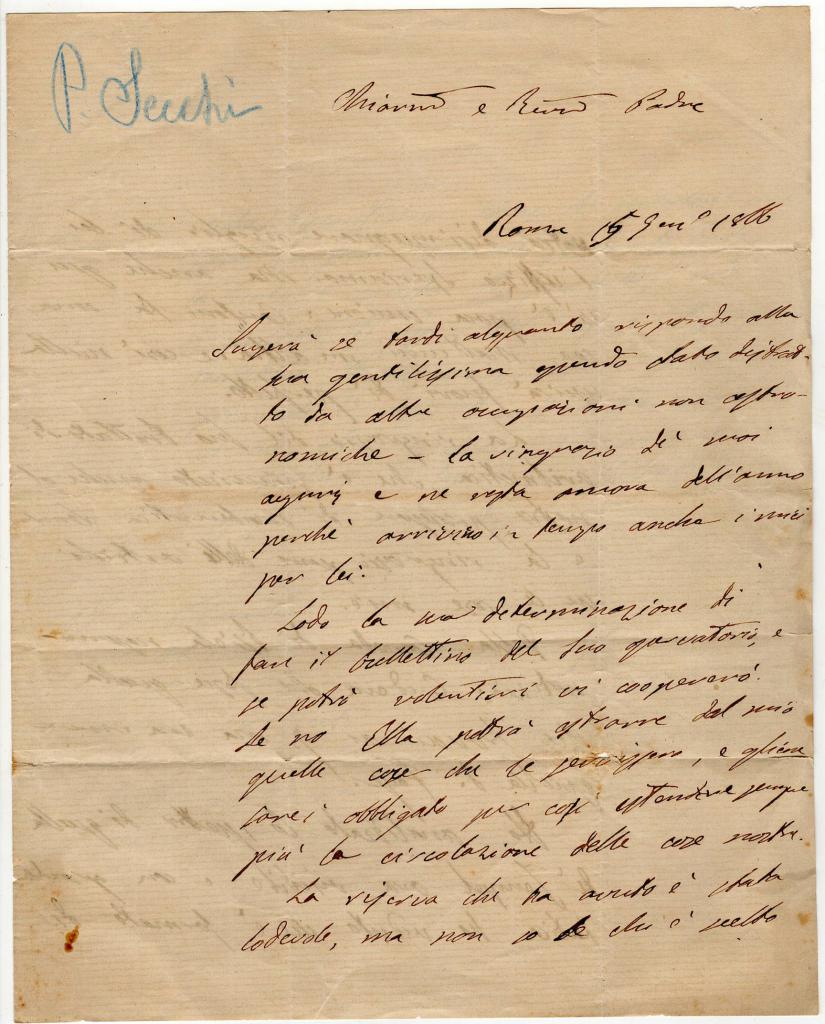 P. Secchi
Chiarmo e Revdo Padre
Roma 15 Geno 1866
se tardi alquanto rispondo alla
sua gentilissima essendo stato distrat-
to da altre occupazioni non astro-
nomiche – La ringrazio de' suoi
auguri e ne resta ancora dell'anno
perchè arrivino in tempo anche i miei
per lei.
Lodo la sua determinazione di
fare il bullettino del suo osservatorio, e
se potrò volentieri vi coopererò.
Se no Ella potrà estrarre dal mio
quelle cose che le servissero, e gliene
sarei obbligato per così estendere sempre
più la circolazione delle cose nostre.
La riserva che ha avuto è stata
lodevole, ma non so se chi è